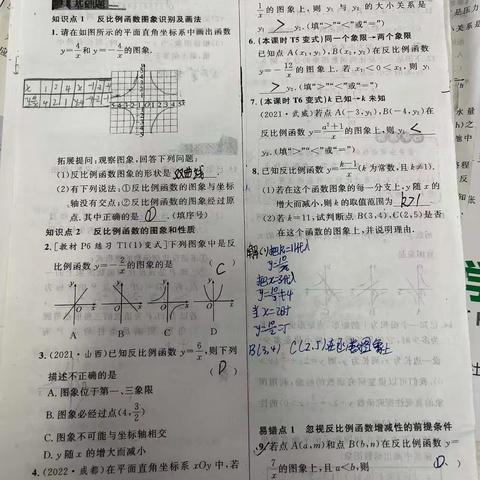 基础题
知识点 1 反比例函数图象识别及画法
1. 请在如图所示的平面直角坐标系中画出函数
y=4/x 和 y=-4/x 的图象.
拓展提问：观察图象,回答下列问题：
(1)反比例函数图象的形状是 双曲线
(2)有下列说法：①反比例函数的图象与坐标
轴没有交点;②反比例函数的图象经过原
点.其中正确的是 ① .(填序号)
知识点 2 反比例函数的图象和性质
2. [教材 P6 练习 T1(1)变式]下列图象中是反
比例函数 y=-2/x 的图象的是 ( C )
A B C D
3. (2021·山西)已知反比例函数 y=6/x,则下列
描述不正确的是 ( D )
A. 图象位于第一、三象限
B. 图象必经过点(4,3/2)
C. 图象不可能与坐标轴相交
D. y 随 x 的增大而减小
4. (2022·成都)在平面直角坐标系 xOy 中,若
1/x 的图象上,则 y₁ 与 y₂ 的大小关系是
y₁ > y₂.(填“>”“<”或“=”)
6. (本课时 T5 变式)同一个象限→两个象限
已知点 A(x₁,y₁),B(x₂,y₂)在反比例函数
y=-12/x 的图象上.若 x₁<0<x₂,则 y₁
> y₂.(填“>”“<”或“=”)
7. (本课时 T6 变式)k 已知→k 未知
(2021·武威)若点 A(-3,y₁),B(-4,y₂)在
反比例函数 y=a²+1/x 的图象上,则 y₁ <
y₂.(填“>”“<”或“=”)
8. 已知反比例函数 y=k-1/x(k 为常数,且 k≠1).
(1)若在这个函数图象的每一分支上,y 随 x 的
增大而减小,则 k 的取值范围为 k>1
(2)若 k=11,试判断点 B(3,4),C(2,5)是否
在这个函数的图象上,并说明理由.
把k=11代入
y=10/x
把x=3代入
y=10/3≠4
当x=2时
y=10/2=5
B(3,4) C(2,5)
易错点 1 忽视反比例函数增减性的前提条件
9. 若点 A(a,m)和点 B(b,n)在反比例函数 y=
7/x 的图象上,且 a<b,则 ( D )